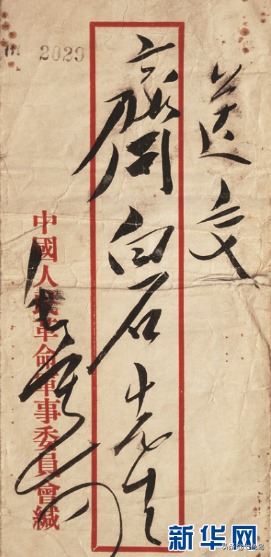 2029
送交
齊白石先生
中國人民革命軍事委員會緘
新华网